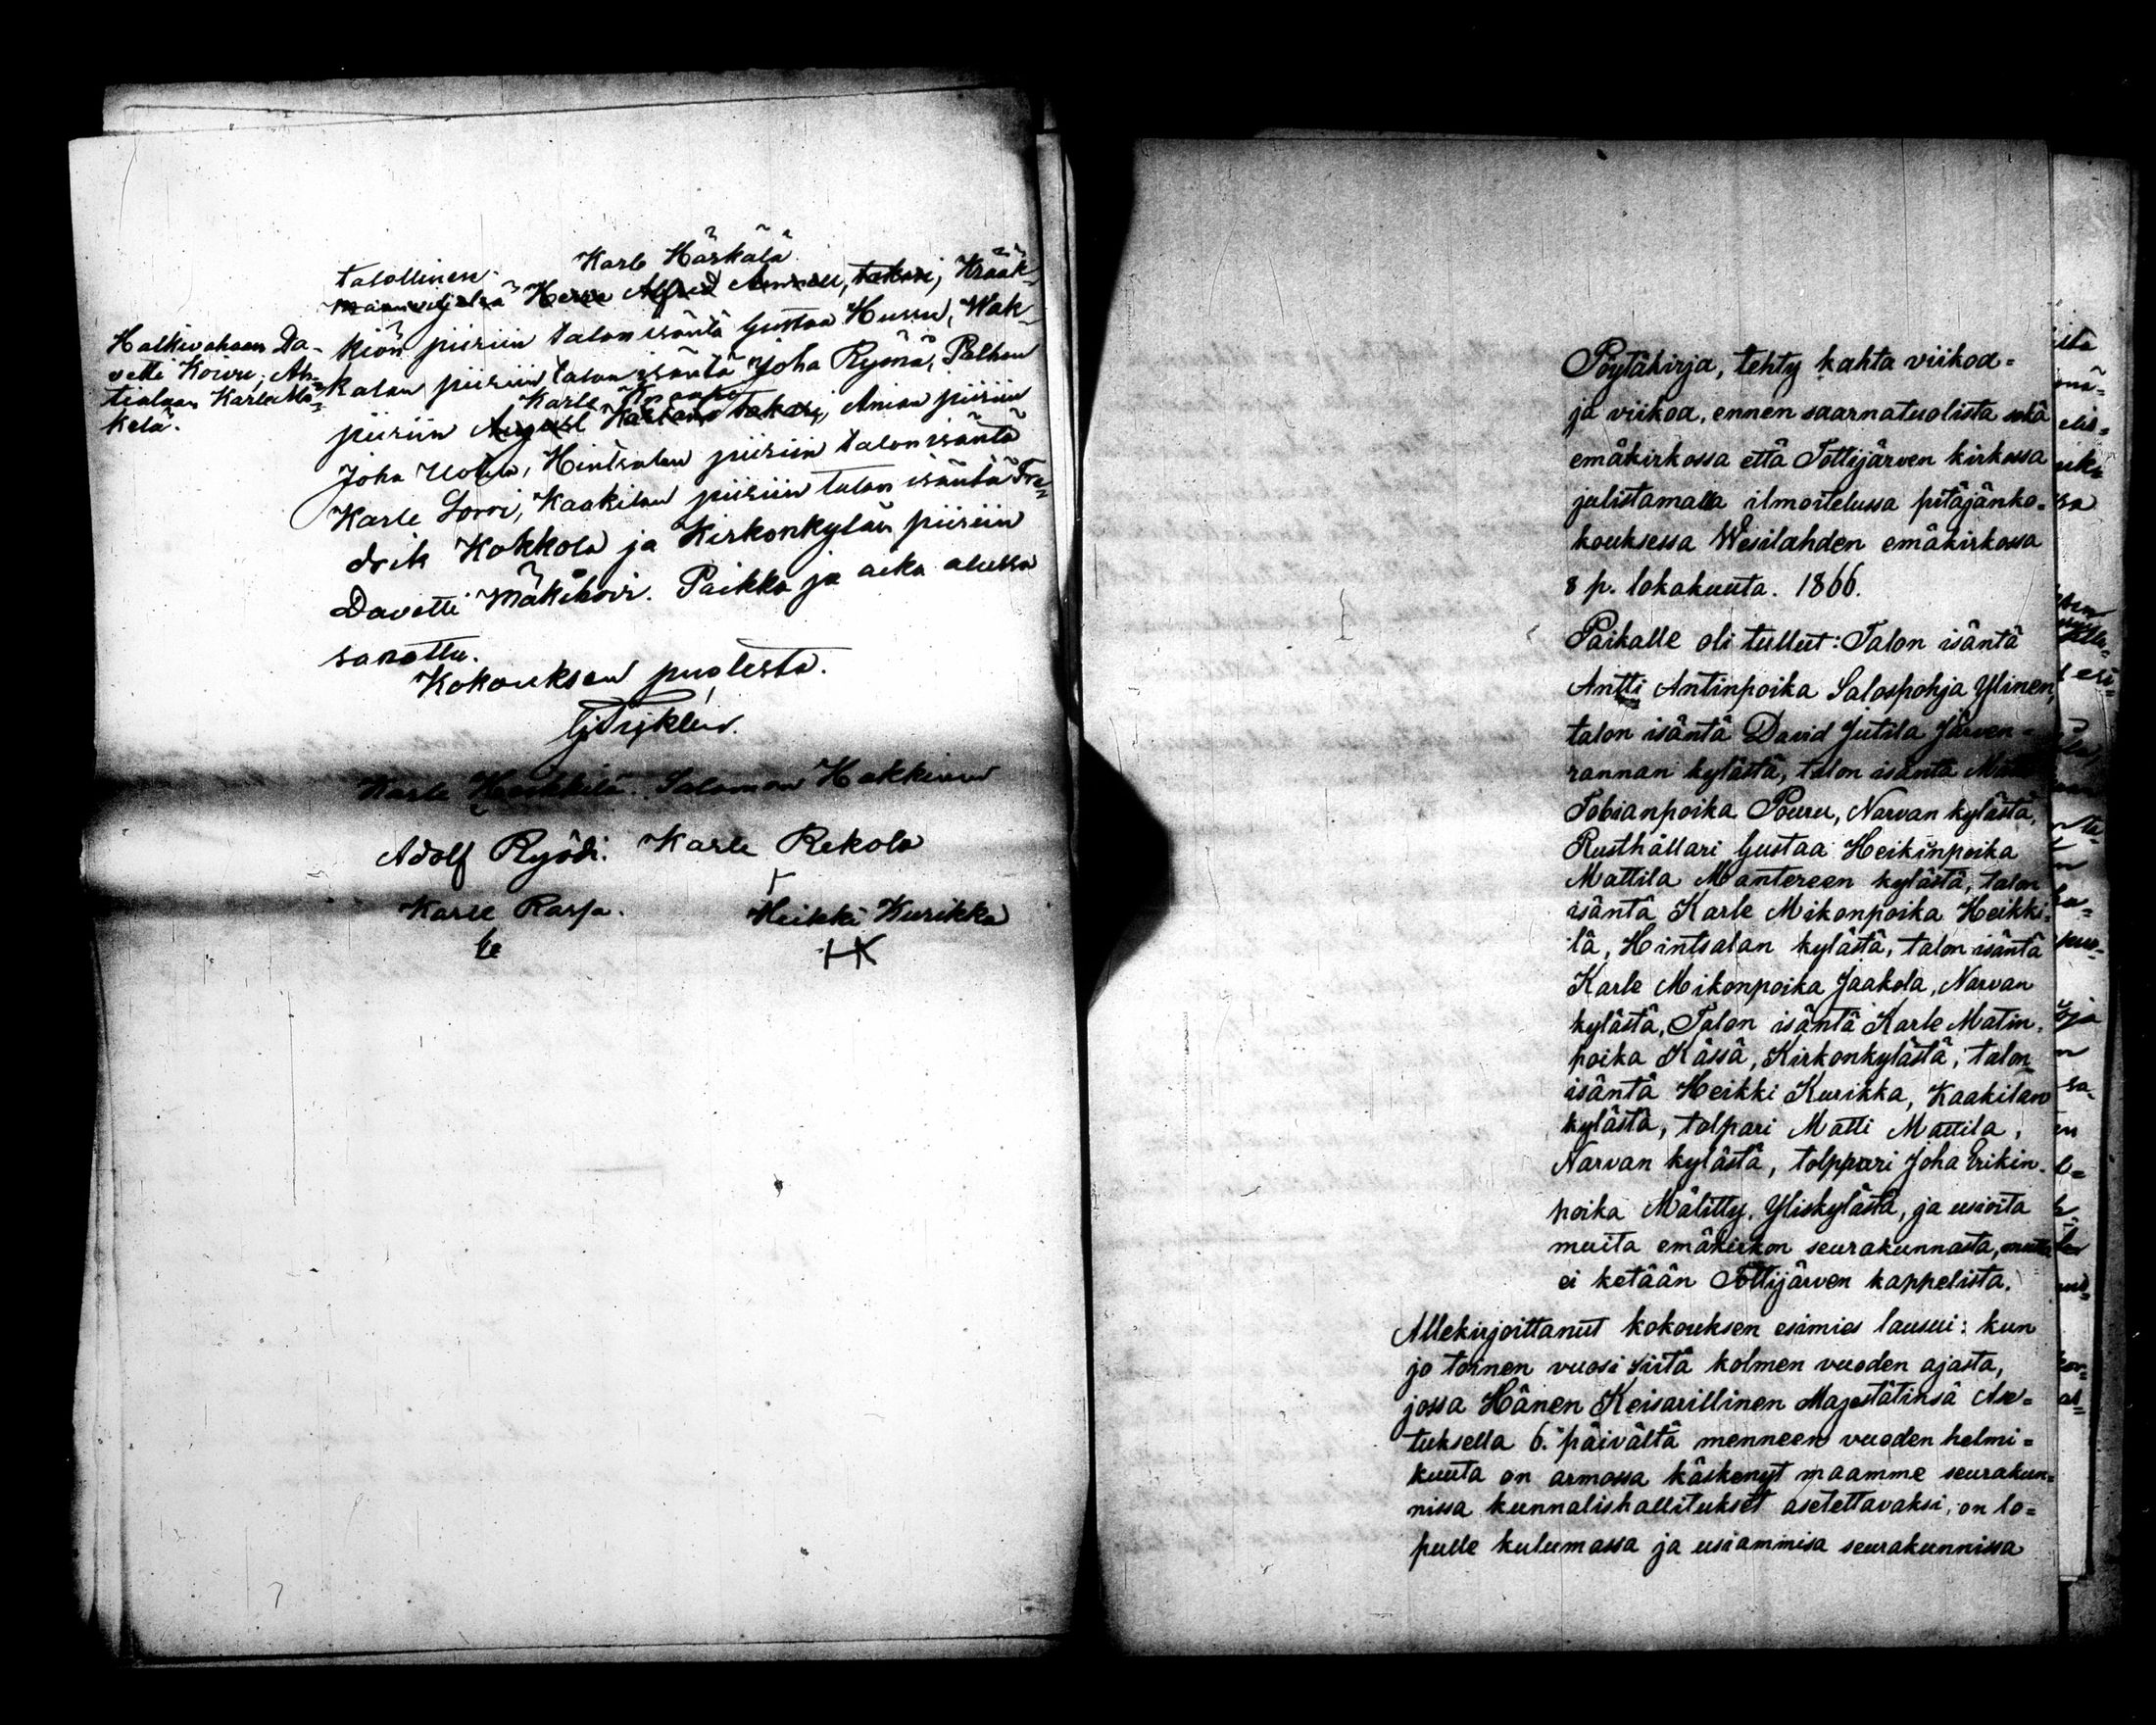 talollinen Karle Härkälä
Herra Alfred takari, Krääk-
kiön piiriin talon isäntä Gustaa Hussu, Wak-
kalan piiriin talon isäntä Joha Ryömä, Palhon
Karle Knaapi
piiriin August takari, Anian piiriin
Joha Uotila, Hintsalan piiriin talon isäntä
Karle Sorri, Kaakilan piiriin talon isäntä Fre-
drik Kokkola ja Kirkonkylän piiriin
Davetti Mäkihovi. Paikka ja aika alussa
sanottu.
Halkivahaan Da-
vetti Koivu, Ah-
tialaan Karle Mä-
kelä.
Kokouksen puolesta.
Karle Heikkilä. Salomon Hakkinen
Adolf Ryödi. Karle Rekola
Karle Rasja. Heikki Kurikka
HK
Pöytäkirja, tehty kahta viikoa=
ja viikoa, ennen saarnatuolista sekä
emäkirkossa että Tottijärven kirkossa
julistamalla ilmoitelussa pitäjänko=
kouksessa Wesilahden emäkirkossa
8 p. lokakuuta. 1866.
Paikalle oli tullut: Talon isäntä
Antti Antinpoika Salospohja Ylinen,
talon isäntä David Jutila Järven=
rannan kylästä, talon isäntä
Tobianpoika Pouru, Narvan kylästä,
Rusthållari Gustaa Heikinpoika
Mattila Mantereen kylästä, talon
isäntä Karle Mikonpoika Heikki=
lä, Hintsalan kylästä, talon isäntä
Karle Mikonpoika Jaakola, Narvan
kylästä, Talon isäntä Karle Matin-
poika Kässä, Kirkonkylästä, talon
isäntä Heikki Kurikka, Kaakilan
kylästä, tolpari Matti Mattila,
Narvan kylästä, tolppari Joha Erikin-
poika Mälitty, Yliskylästä, ja usioita
muita emäkirkon seurakunnasta, mutta
ei ketään Tottijärven kappelista.
Allekirjoittanut kokouksen esimies lausui: kun
jo toinen vuosi siitä kolmen vuoden ajasta,
jossa Hänen Keisarillinen Majestätinsä Ase=
tuksella 6. päivältä menneen vuoden helmi=
kuuta on armossa käskenyt maamme seurakun=
nissa kunnalishallitukset asetettavaksi, on lo=
pulle kulumassa ja usiammisa seurakunnissa